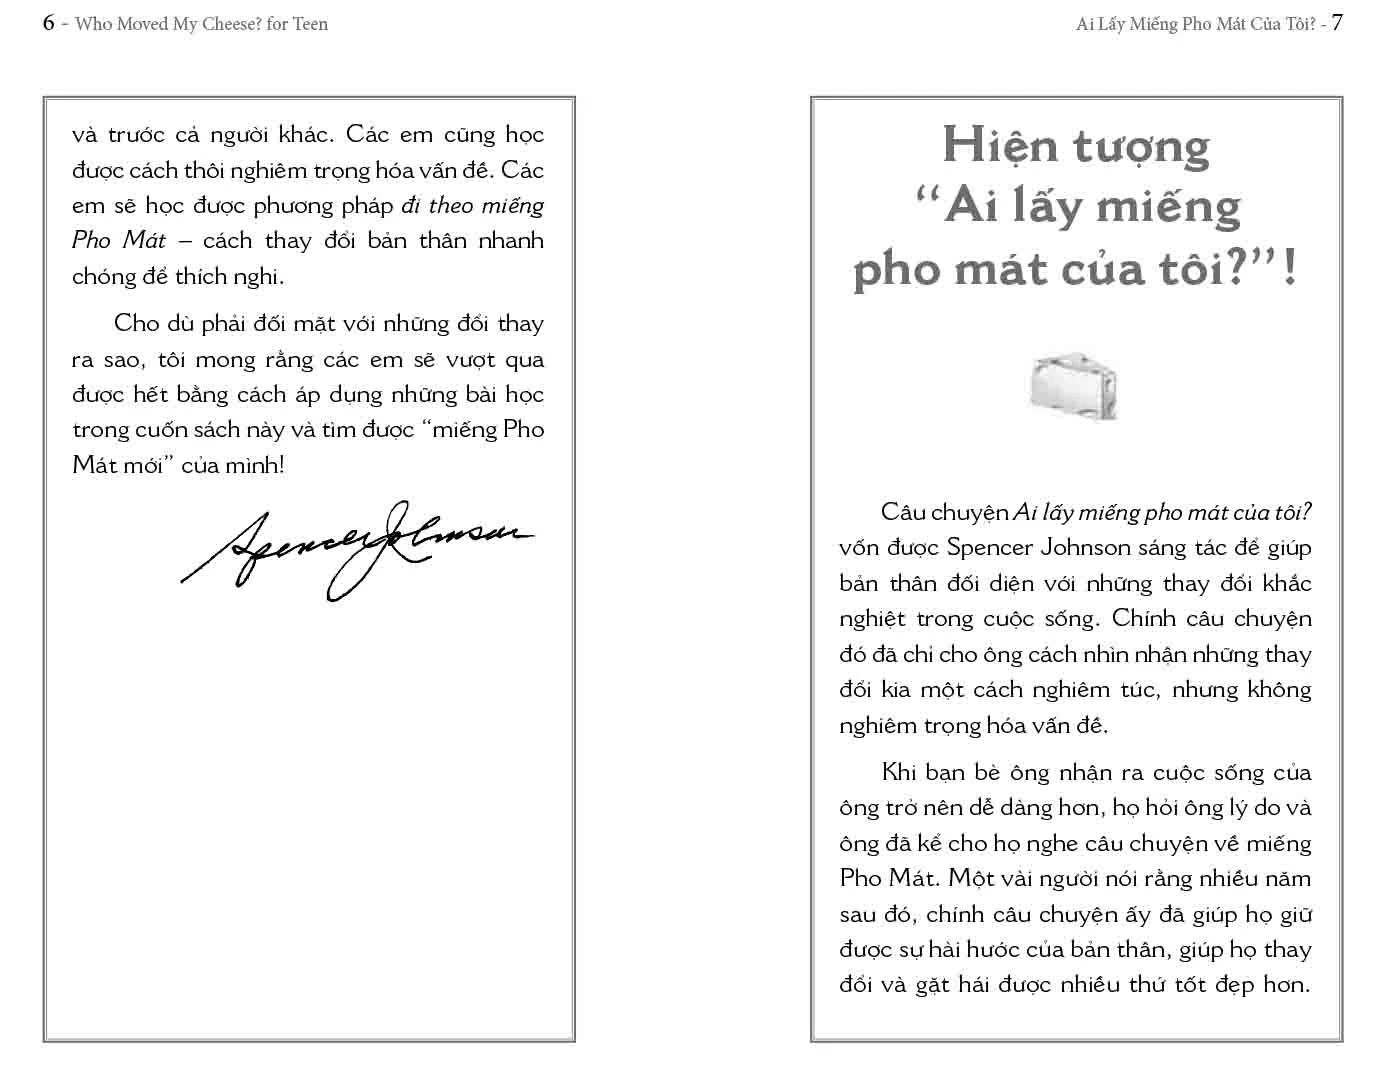 6 - Who Moved My Cheese? for Teen
và trước cả người khác. Các em cũng học
được cách thôi nghiêm trọng hóa vấn đề. Các
em sẽ học được phương pháp đi theo miếng
Pho Mát – cách thay đổi bản thân nhanh
chóng để thích nghi.
Cho dù phải đối mặt với những đổi thay
ra sao, tôi mong rằng các em sẽ vượt qua
được hết bằng cách áp dụng những bài học
trong cuốn sách này và tìm được “miếng Pho
Mát mới” của mình!
Spencer Johnson
Ai Lấy Miếng Pho Mát Của Tôi? - 7
Hiện tượng
“Ai lấy miếng
pho mát của tôi?”!
Câu chuyện Ai lấy miếng pho mát của tôi?
vốn được Spencer Johnson sáng tác để giúp
bản thân đối diện với những thay đổi khắc
nghiệt trong cuộc sống. Chính câu chuyện
đó đã chỉ cho ông cách nhìn nhận những thay
đổi kia một cách nghiêm túc, nhưng không
nghiêm trọng hóa vấn đề.
Khi bạn bè ông nhận ra cuộc sống của
ông trở nên dễ dàng hơn, họ hỏi ông lý do và
ông đã kể cho họ nghe câu chuyện về miếng
Pho Mát. Một vài người nói rằng nhiều năm
sau đó, chính câu chuyện ấy đã giúp họ giữ
được sự hài hước của bản thân, giúp họ thay
đổi và gặt hái được nhiều thứ tốt đẹp hơn.